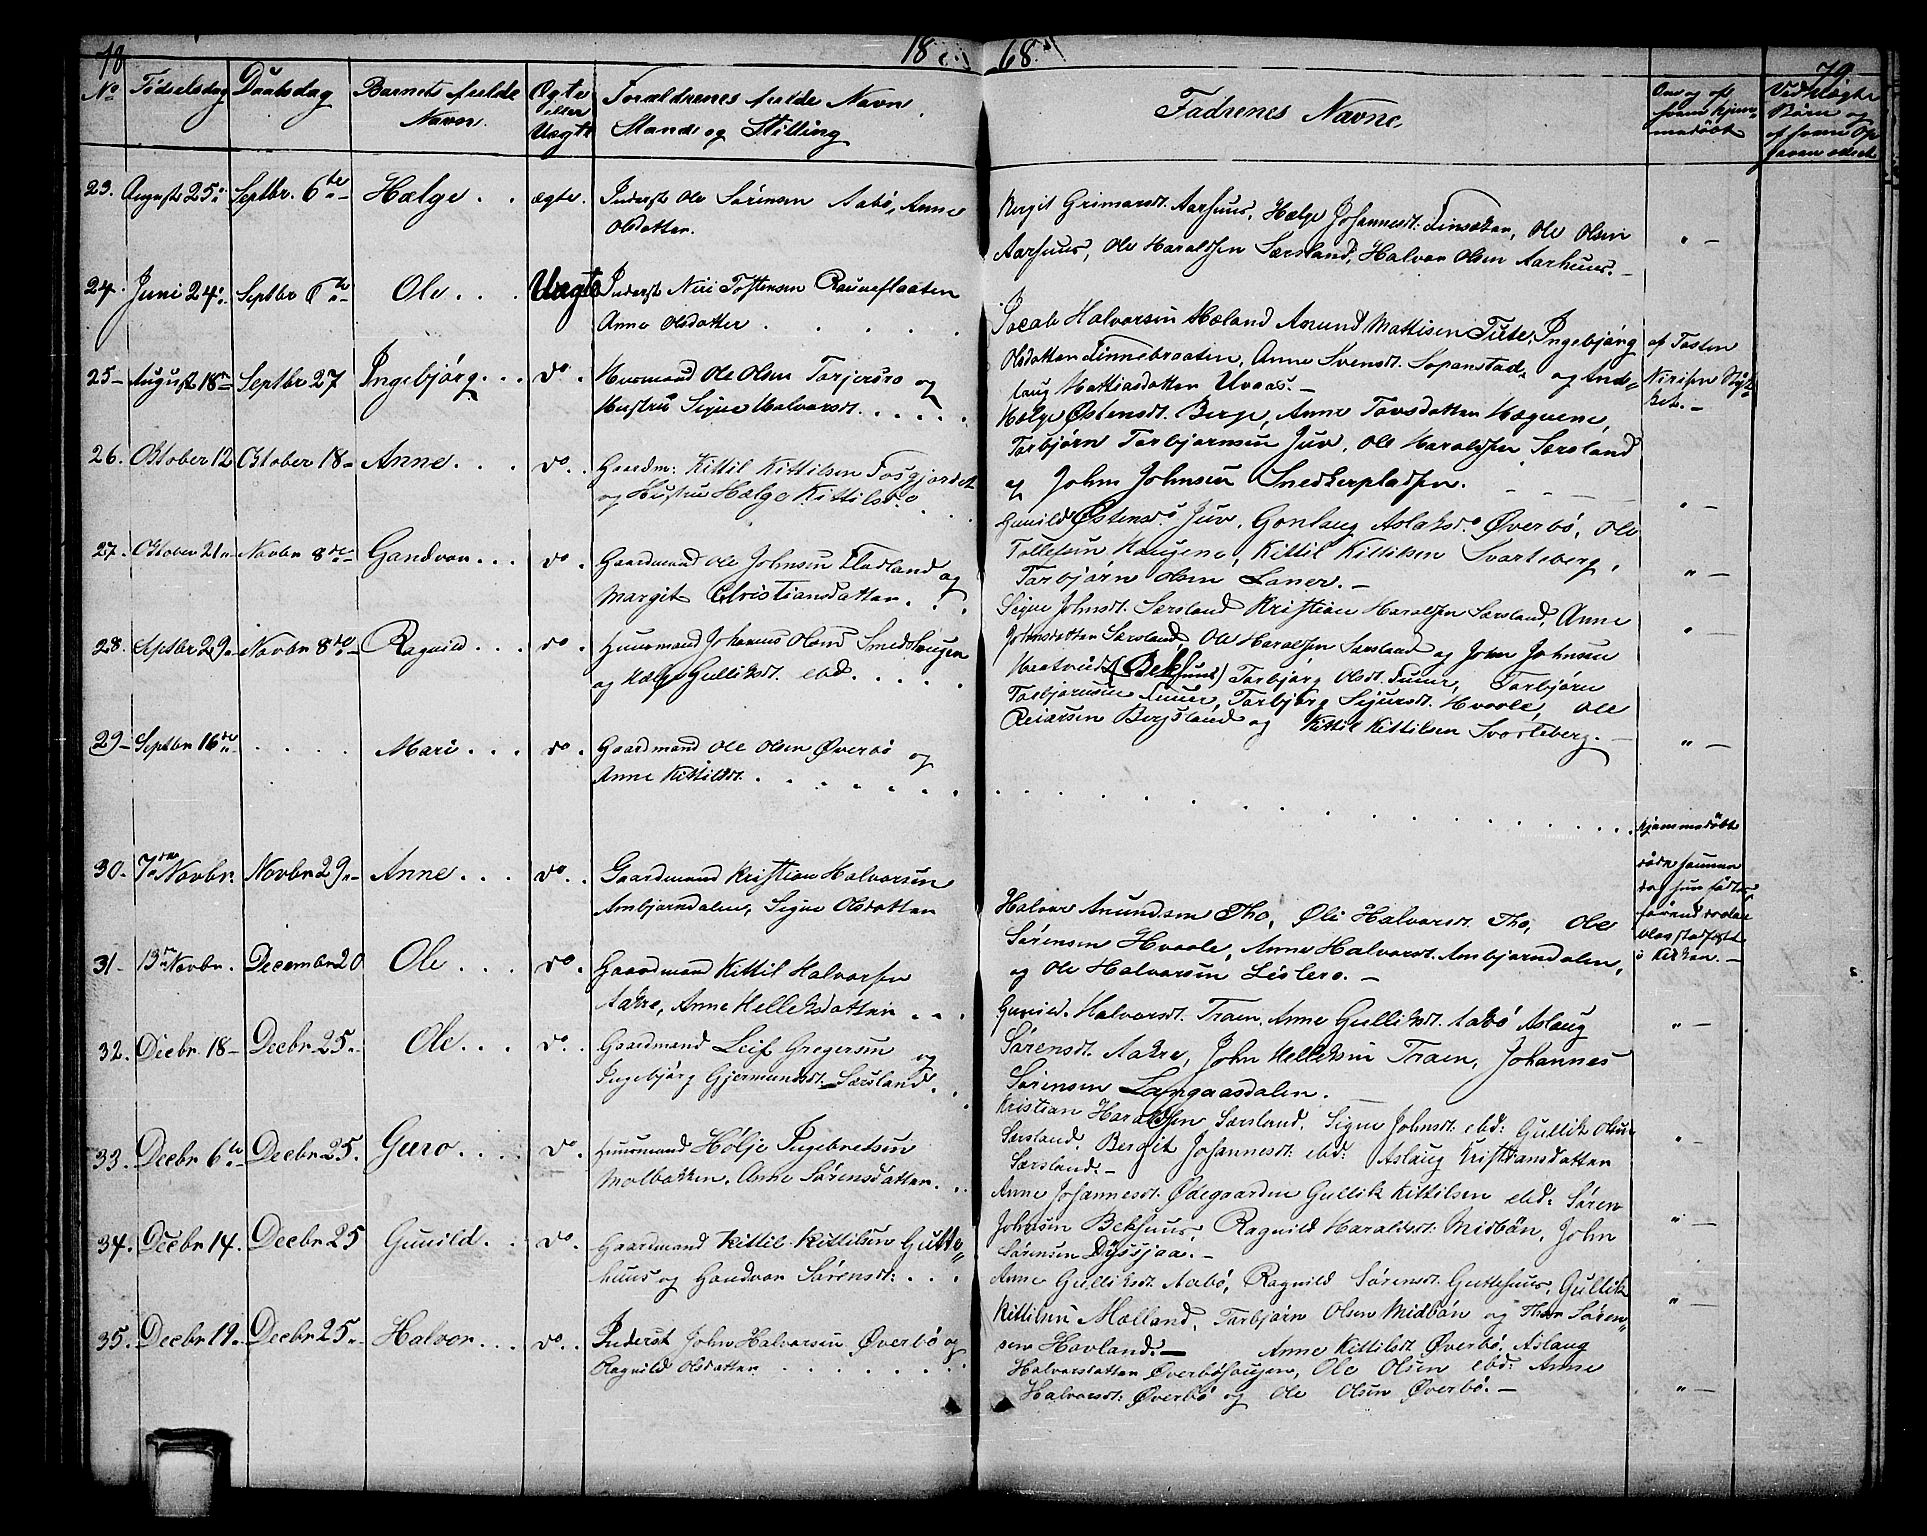 78
18 68.
79.
No Födselsdag Daabsdag Barnets fulde Navn. Ægte eller Uægte Forældrenes fulde Navn Stand og Stilling
Fadrenes Navne.
Om og af hvem hjemmedöbt
Ved Uægte Börn og af hvem
23. August 25 Septbr. 6te Hælge . . ægte. Inderst Ole Sørensen Aabø, Anne
Olsdatter.
Bergit Grimarsdt. Aarhuus, Hælge Johannesdt: Ole Olsen
Aarhuus, Ole Haraldsen Særsland, Halvor Olsen Aarhuus.
" —
24. Juni 24 Septbr 6te Ole . . . Uægte Inderst Niri Tostensen Rauneflaaten
Anne Olsdatter . . . .
Jocab Halvorsen Hæland Anund Mattisen Tute, Ingebjörg
Olsdatter Finnebraaten, Anne Svensdt. Sopanstad og Ans-
laug Mattiasdatter Uvaas. —
af Tosten
Nirisen
25 – August 18 Septbr 27 Ingebjörg. . . do. Huusmand Ole Olsen Torjersro og
Hustru Signe Halvorsdt. . . . .
Hælge Østensdt. Berge, Anne Torsdatter Hægnene,
Torbjörn Torbjørnsen Juv, Ole Haraldsen Særsland
og John Johnsen Snedkerpladsen.
26. Oktober 12 Oktober 18 – Anne. . . do. . Gaardm: Kittil Kittilsen Fosgjordet
og Hustru Hælge Kittilsd.
Gunild Østensd. Juv, Gonlaug Aslaksd. Øverbö, Ole
Tollefsen Haugene, Kittil Kittilsen Svarteberg,
Torbjørn Olsen Laner. —
" —
27. Oktober 21 Novbr 8de Gandvor . . . do . Gaardmand Ole Johnsen Fladland og
Margit Christiansdatter. . .
Signe Johnsdt. Særsland Kristian Haraldsen Særsland, Anne
Johnsdatter Særsland, Ole Haraldsen Særsland og John Johnsen
" —
28. Septbr 29 Novbr 8de Ragnild . . . do. . Huusmand Johannes Olsen Smedshaugen
og Hælge Gulliksdt. ebd. . . . .
(Bekhuus) Torbjörg Olsdt. Torbjörn
Torbjørnsen Torbjörg Sigursdt. Hvaale, Ole
Reiersen Bergsland og Kittil Kittilsen Svarteberg. —
" —
29 – Septbr 16de . . . . Mari . . . do. Gaardmand Ole Olsen Øverbö og
Anne Kittilsdt. . . . .
" —
hjemmedöbt
döde samme
dag hun födtes
30. 7de Novbr. Novbr 29 – Anne. . . do. . Gaardmand Kristian Halvorsen
Ambjorndalen, Signe Olsdatter
Halvor Anundsen Tho, Øli Halvorsdt. Tho, Ole
Sørensen Hvaale, Anne Halvorsdt. Ambjorndalen,
og Ole Halvorsen Lislero. —
i Kirken. —
31 – 13 Novbr. December 20 Ole . . . do. . Gaardmand Kittil Halvorsen
Aakre, Anne Helleksdatter . . .
Gunild Halvorsdt. Traen, Anne Gulliksdt. Aabö Aslaug
Sørensdt. Aakre, John Helleksen Traen, Johannes
Sørensen Langaasdalen.
" —
32. Decbr. 18 – Decbr. 25. Ole. . . do. . Gaardmand Leif Gregersen og
Ingebjörg Gjermundsdt. Særsland. .
Kristian Haraldsen Særsland, Signe Johnsdt. ebd: Gullik Olsen
Særsland, Bergit Johannesdt. ebd: Aslaug Kristiansdatter
Særsland. —
" —
33. Decbr. 6te Decbr. 25. Guro . . . do. Huusmand Hölje Ingebretsen
Molbakken, Anne Sørensdatter. . .
Anne Johannesdt. Ødegaarden Gullik Kittilsen ebd: Sören
Johnsen Bekhuus, Ragnild Haraldsdt. Midbön, John
Sørensen Dyssjaa. —
" —
34. Decbr. 14. Decbr. 25 Gunild. . . do. . Gaardmand Kittil Kittilsen Gutte-
huus og Gandvor Sørensdt: . . .
Anne Gulliksdt. Aabö, Ragnild Sørensdt. Guttehuus, Gullik
Kittilsen Mælland, Torbjörn Olsen Midbön og Thor Sören-
sen Havland. —
" —
35. Decbr. 19. Decbr. 25. Halvor. . . do. . Inderst John Halvorsen Øverbö og
Ragnild Olsdatter . . . . .
Anne Kittilsdt. Øverbö, Aslaug
Halvorsdatter Øverböhaugen, Ole Olsen ebd: Anne
Halvorsdt: Øverbö og Ole Olsen Øverbö. —
" —